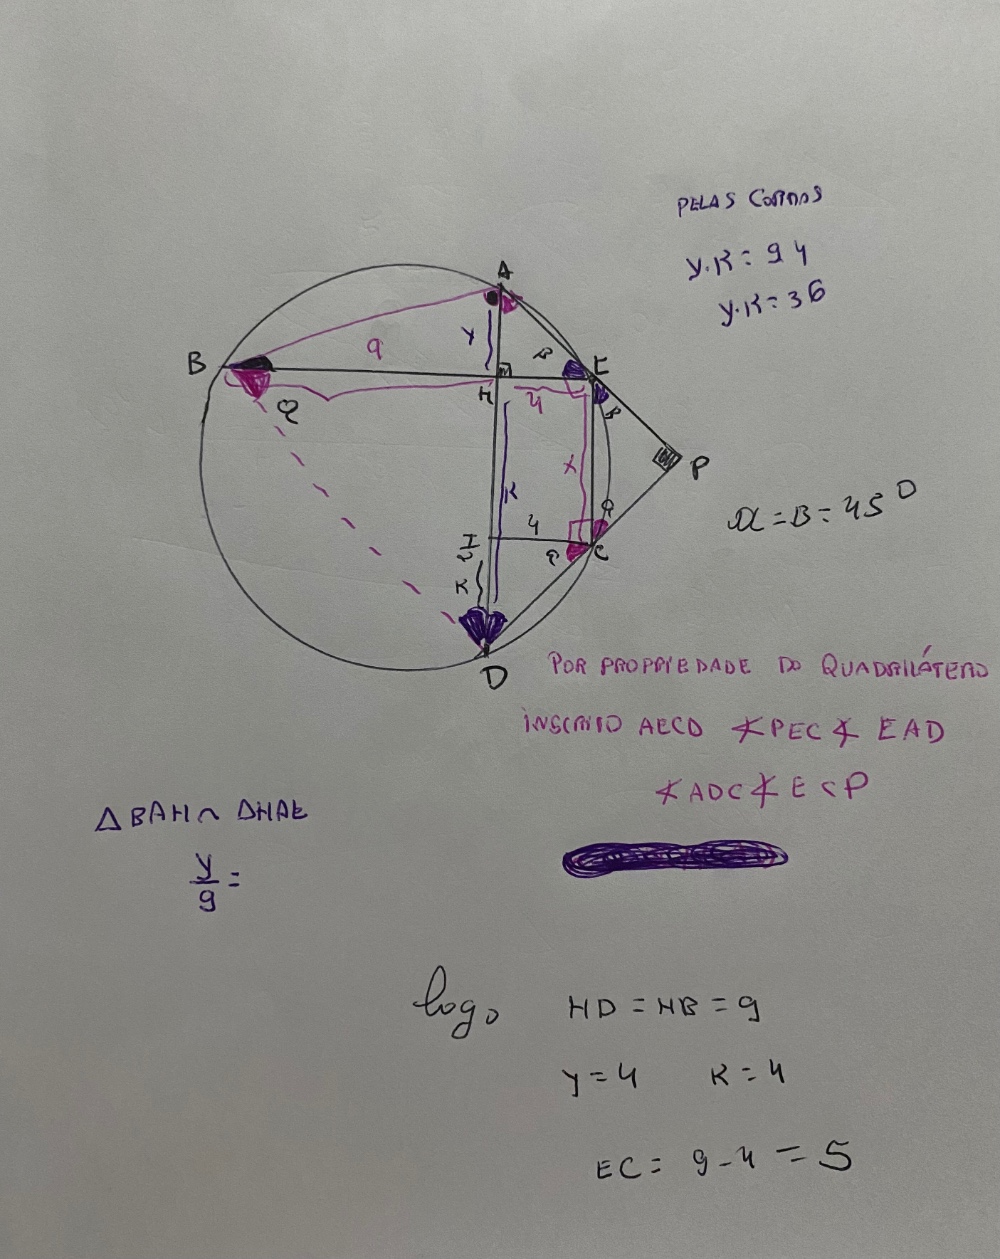 PELAS CORDAS
y.K = 9 4
y.K = 36
A
B
9
Y
B
E
H
4
B
P
Q
K
X
I
4
Q
C
K
D
α = B = 45°
POR PROPRIEDADE DO QUADRILÁTERO
INSCRITO AECD ∡PEC ∡ EAD
∡ADC ∡ECP
Δ BAH ~ ΔHAE
y/9 =
logo HD = HB = 9
y = 4 K = 4
EC = 9 - 4 = 5